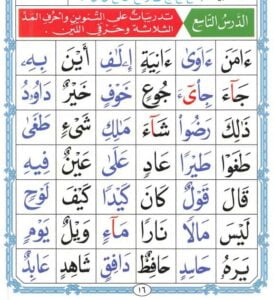 الدَّرْسُ التَّاسِعُ
تَدْرِيبَاتٌ عَلَى التَّنْوِينِ وَأَحْرُفِ المَدِّ
الثَّلَاثَةِ وَحَرْفَيِ اللِّينِ .
ءَامَنَ ءَاوَىٰ ءَانِيَةٍ إِۦلَٰفِ أَيْنَ بِهِۦ
جَآءَ جِاْىٓءَ جُوعٍ خَوْفٍ خَيْرٌ دَاوُۥدُ
ذَٰلِكَ رَضُواْ شَآءَ مَٰلِكِ شَىْءٍ طَغَىٰ
طَغَوْاْ طَيْرًا عَادٍ عَلَىٰ عَيْنٌ فِيهِ
قَالَ قَوْلٌ كَانَ كَيْدًا كَيْفَ لَوْحٍ
لَيْسَ مَالًا نَارًا مَآءٍ وَيْلٌ يَوْمٍ
يَرَهُۥ حَاسِدٍ حَافِظٌ دَافِقٍ شَاهِدٍ عَابِدٌ
١٦